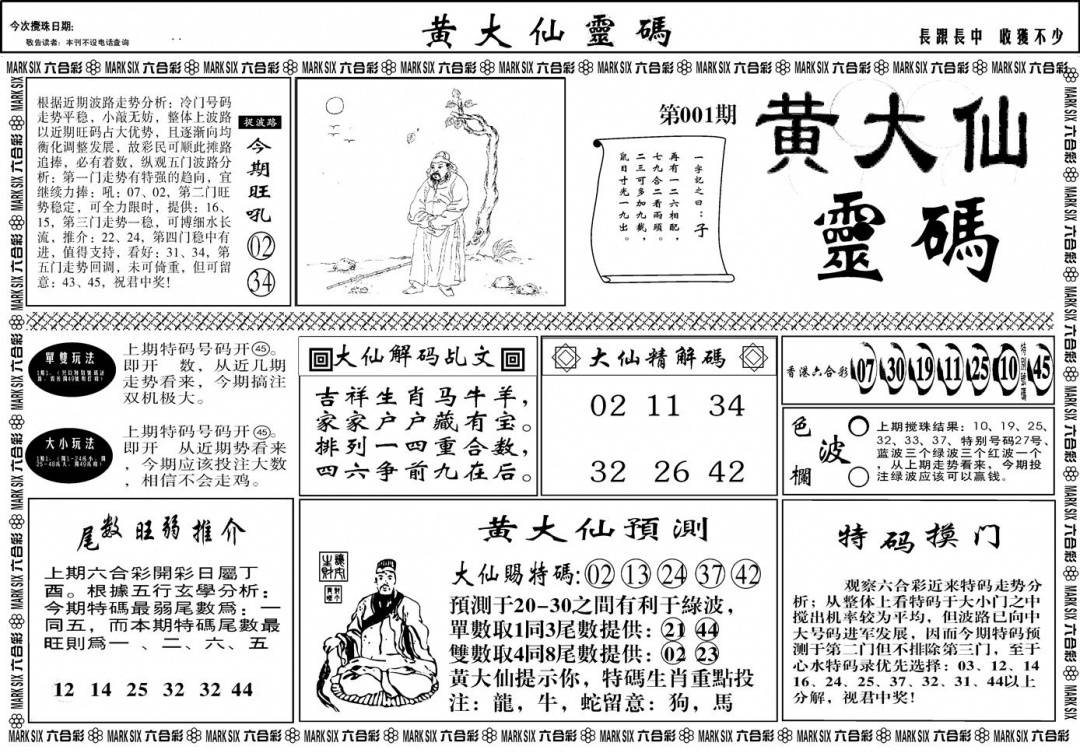 今次搅珠日期:
敬告读者：本刊不设电话查询
黄大仙靈碼
長跟長中 收獲不少
MARK SIX 六合彩 MARK SIX 六合彩 MARK SIX 六合彩 MARK SIX 六合彩 MARK SIX 六合彩 MARK SIX 六合彩 MARK SIX 六合彩 MARK SIX 六合彩 MARK SIX 六合彩 MARK SIX 六合彩 MARK SIX 六合彩
根据近期波路走势分析：冷门号码
走势平稳，小敲无妨，整体上波路
以近期旺码占大优势，且逐渐向均
衡化调整发展，故彩民可顺此摊路
追捧，必有着数，纵观五门波路分
析：第一门走势有特强的趋向，宜
继续力捧：吼：07、02，第二门旺
势稳定，可全力限时，提供：16、
15，第三门走势一稳，可博细水长
流，推介：22、24，第四门稳中有
进，值得支持，看好：31、34，第
五门走势回调，未可倚重，但可留
意：43、45，祝君中奖！
捉波路
今期旺吼
02
34
第001期
一字記之曰：子
再有一二六相配，
七九合二看兩頭。
二三可多加九截，
鼠目寸光一九出。
黄大仙
靈碼
單雙玩法
上期特码号码开㊺。
即开　数，从近几期
走势看来，今期搞注
双机极大。
大小玩法
上期特码号码开㊺。
即开　从近期势看来
，今期应该投注大数
，相信不会走鸡。
大仙解码乩文
吉祥生肖马牛羊，
家家户户藏有宝。
排列一四重合数，
四六争前九在后。
大仙精解碼
02 11 34
32 26 42
香港六合彩 07 30 19 11 25 10 特别號碼 45
色波欄
上期搅珠结果：10、19、25、
32、33、37、特别号码27号、
蓝波三个绿波三个红波一个
，从上期走势看来，今期投
注绿波应该可以赢钱。
尾数旺弱推介
上期六合彩開彩日屬丁
酉。根據五行玄學分析：
今期特碼最弱尾數爲：一
同五，而本期特碼尾數最
旺則爲一 、二、六、五
12 14 25 32 32 44
黄大仙預測
大仙赐特碼:02 13 24 37 42
預測于20-30之間有利于綠波，
單數取1同3尾數提供：21 44
雙數取4同8尾數提供：02 23
黄大仙提示你，特碼生肖重點投
注：龍，牛，蛇留意：狗，馬
特码摸门
观察六合彩近来特码走势分
析；从整体上看特码于大小门之中
搅出机率较为平均，但波路已向中
大号码进军发展，因而今期特码预
测于第二门但不排除第三门，至于
心水特码录优先选择：03、12、14
16、24、25、37、32、31、44以上
分解，视君中奖！
MARK SIX 六合彩 MARK SIX 六合彩 MARK SIX 六合彩 MARK SIX 六合彩 MARK SIX 六合彩 MARK SIX 六合彩 MARK SIX 六合彩 MARK SIX 六合彩 MARK SIX 六合彩 MARK SIX 六合彩 MARK SIX 六合彩